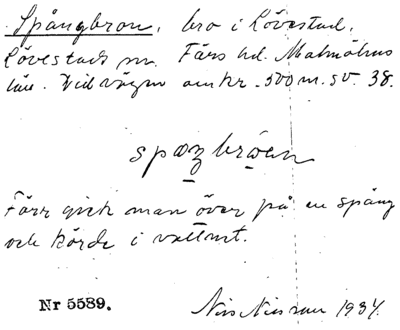 Spångbron, bro i Lövestad,
Lövestads sn. Färs hd. Malmöhus
län. Vid vägen omkr. 500 m. SV. 38.
Förr gick man över på en spång
och körde i vattnet.
Nr 5589. Nils Nilsson 1934.